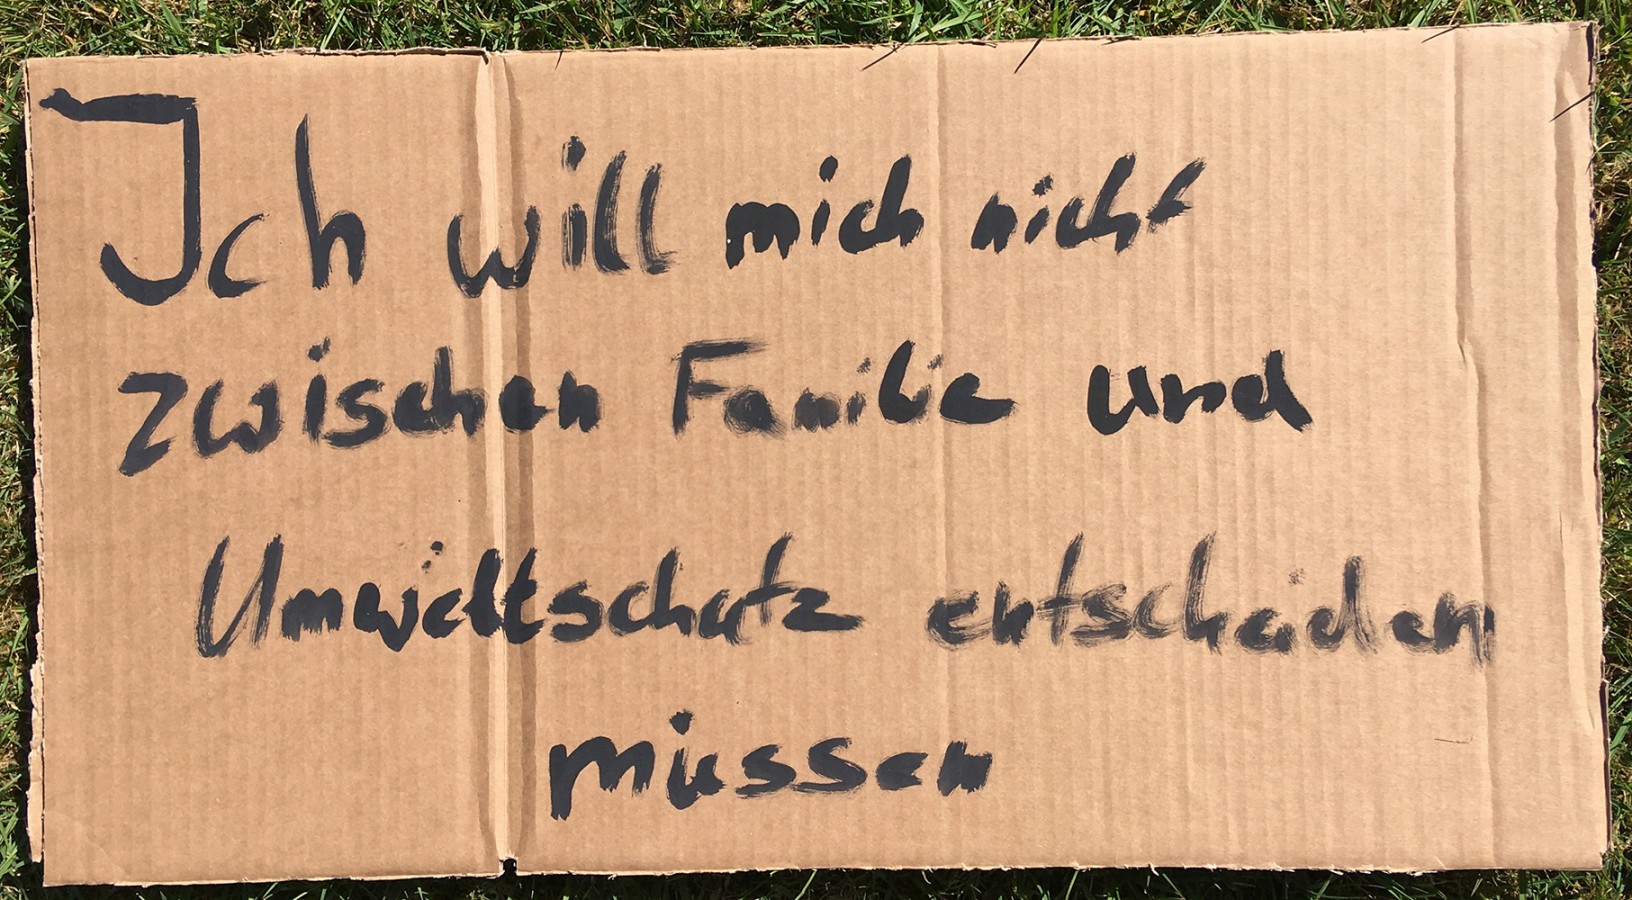 Ich will mich nicht
zwischen Familie und
Umweltschutz entscheiden
müssen